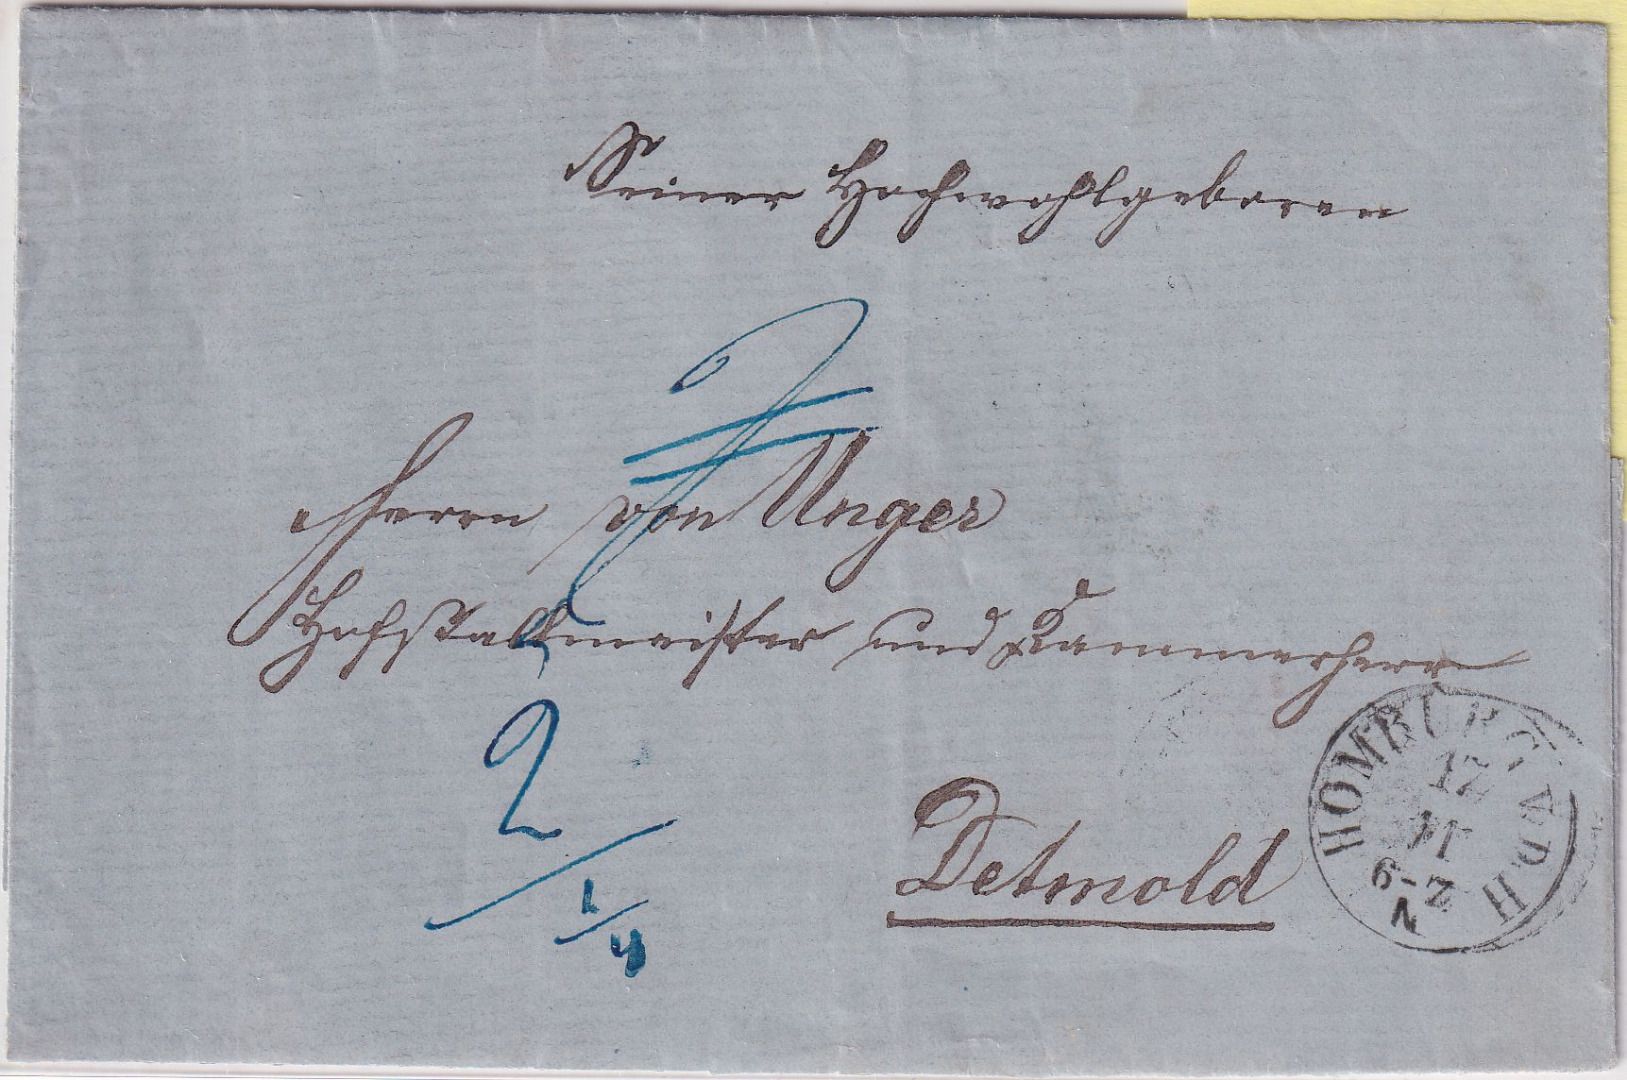 Seiner Hochwohlgeboren
Herrn von Unger
Hofstallmeister und Kammerherr
Detmold
2
1/4
HOMBURG V.D.H
17
11
6-7
N